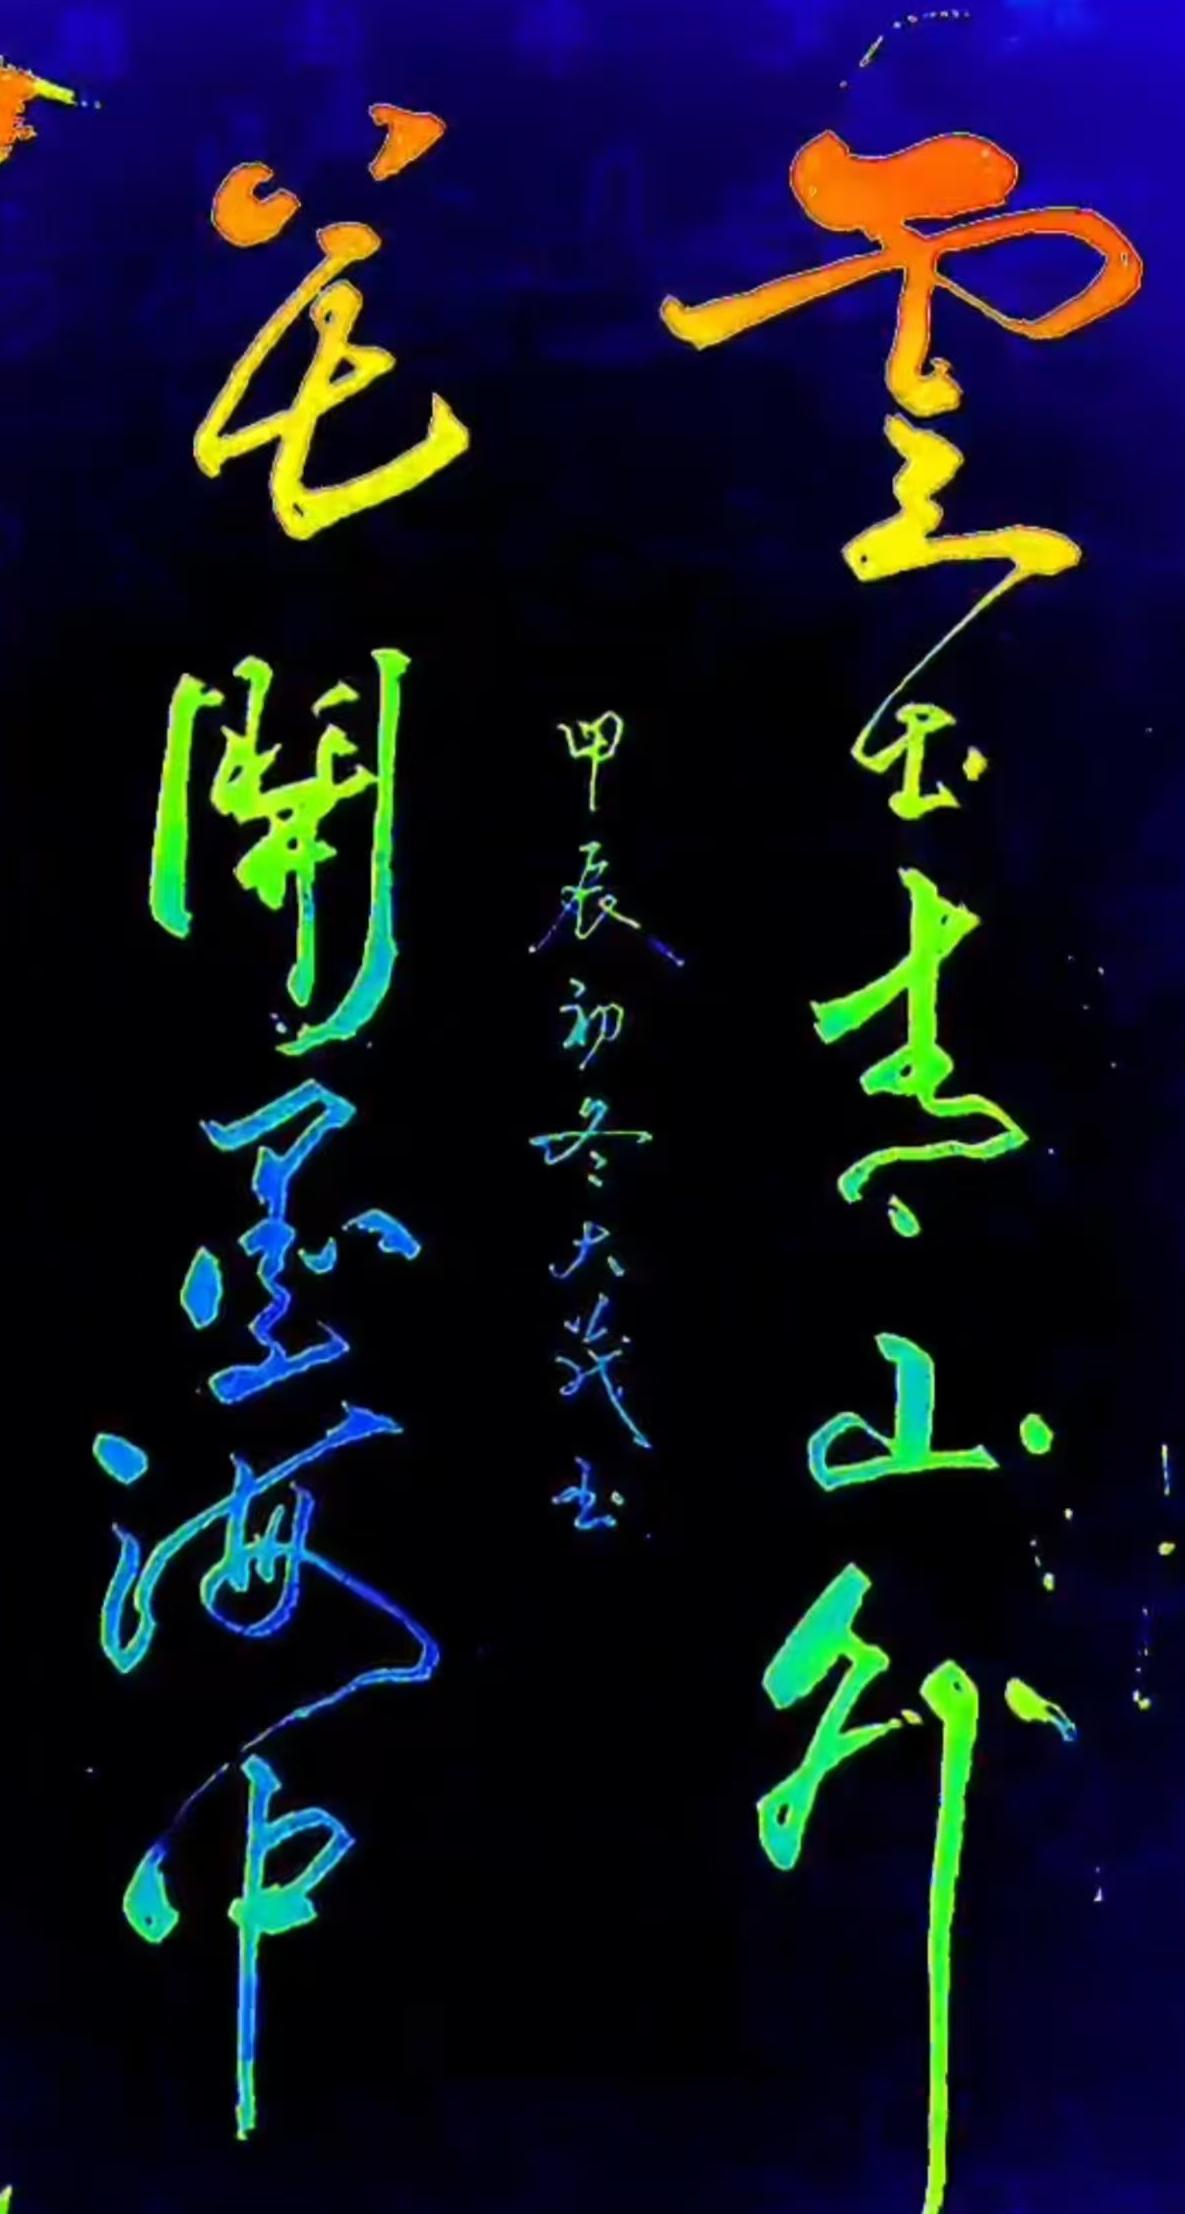 雲在青山外
甲辰初冬大茂书
花開墨海中